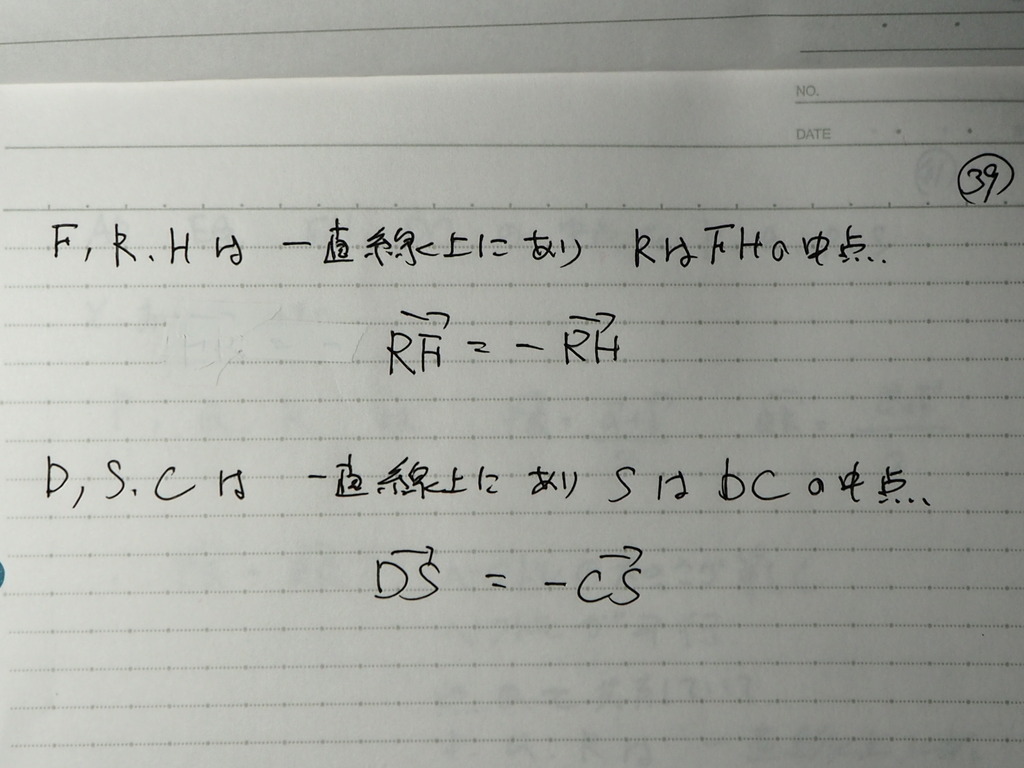 NO.
DATE
㊴
F, R, Hは 一直線上にあり RはFHの中点.
$\overrightarrow{RF} = -\overrightarrow{RH}$
D, S, Cは 一直線上にあり SはDCの中点.
$\overrightarrow{DS} = -\overrightarrow{CS}$